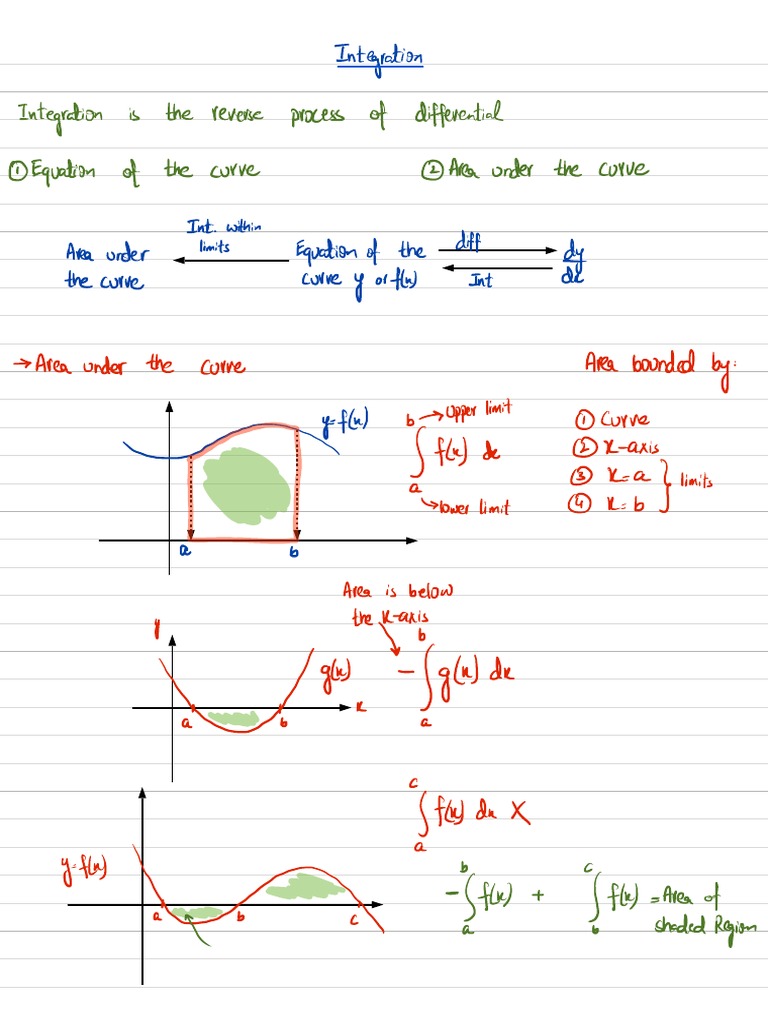 Integration
Integration is the reverse process of differential
① Equation of the curve
② Area under the curve
Area under
the curve
Int. within
limits
Equation of the
curve y or f(x)
diff
Int
dy
dx
→ Area under the curve
Area bounded by:
y=f(x)
a
b
b → Upper limit
∫ f(x) dx
a
→ lower limit
① Curve
② x-axis
③ x=a
④ x=b
limits
Area is below
the x-axis
y
g(x)
x
a
b
b
- ∫ g(x) dx
a
y=f(x)
a
b
c
c
∫ f(x) dx X
a
b c
- ∫ f(x) + ∫ f(x) = Area of
a b shaded Region